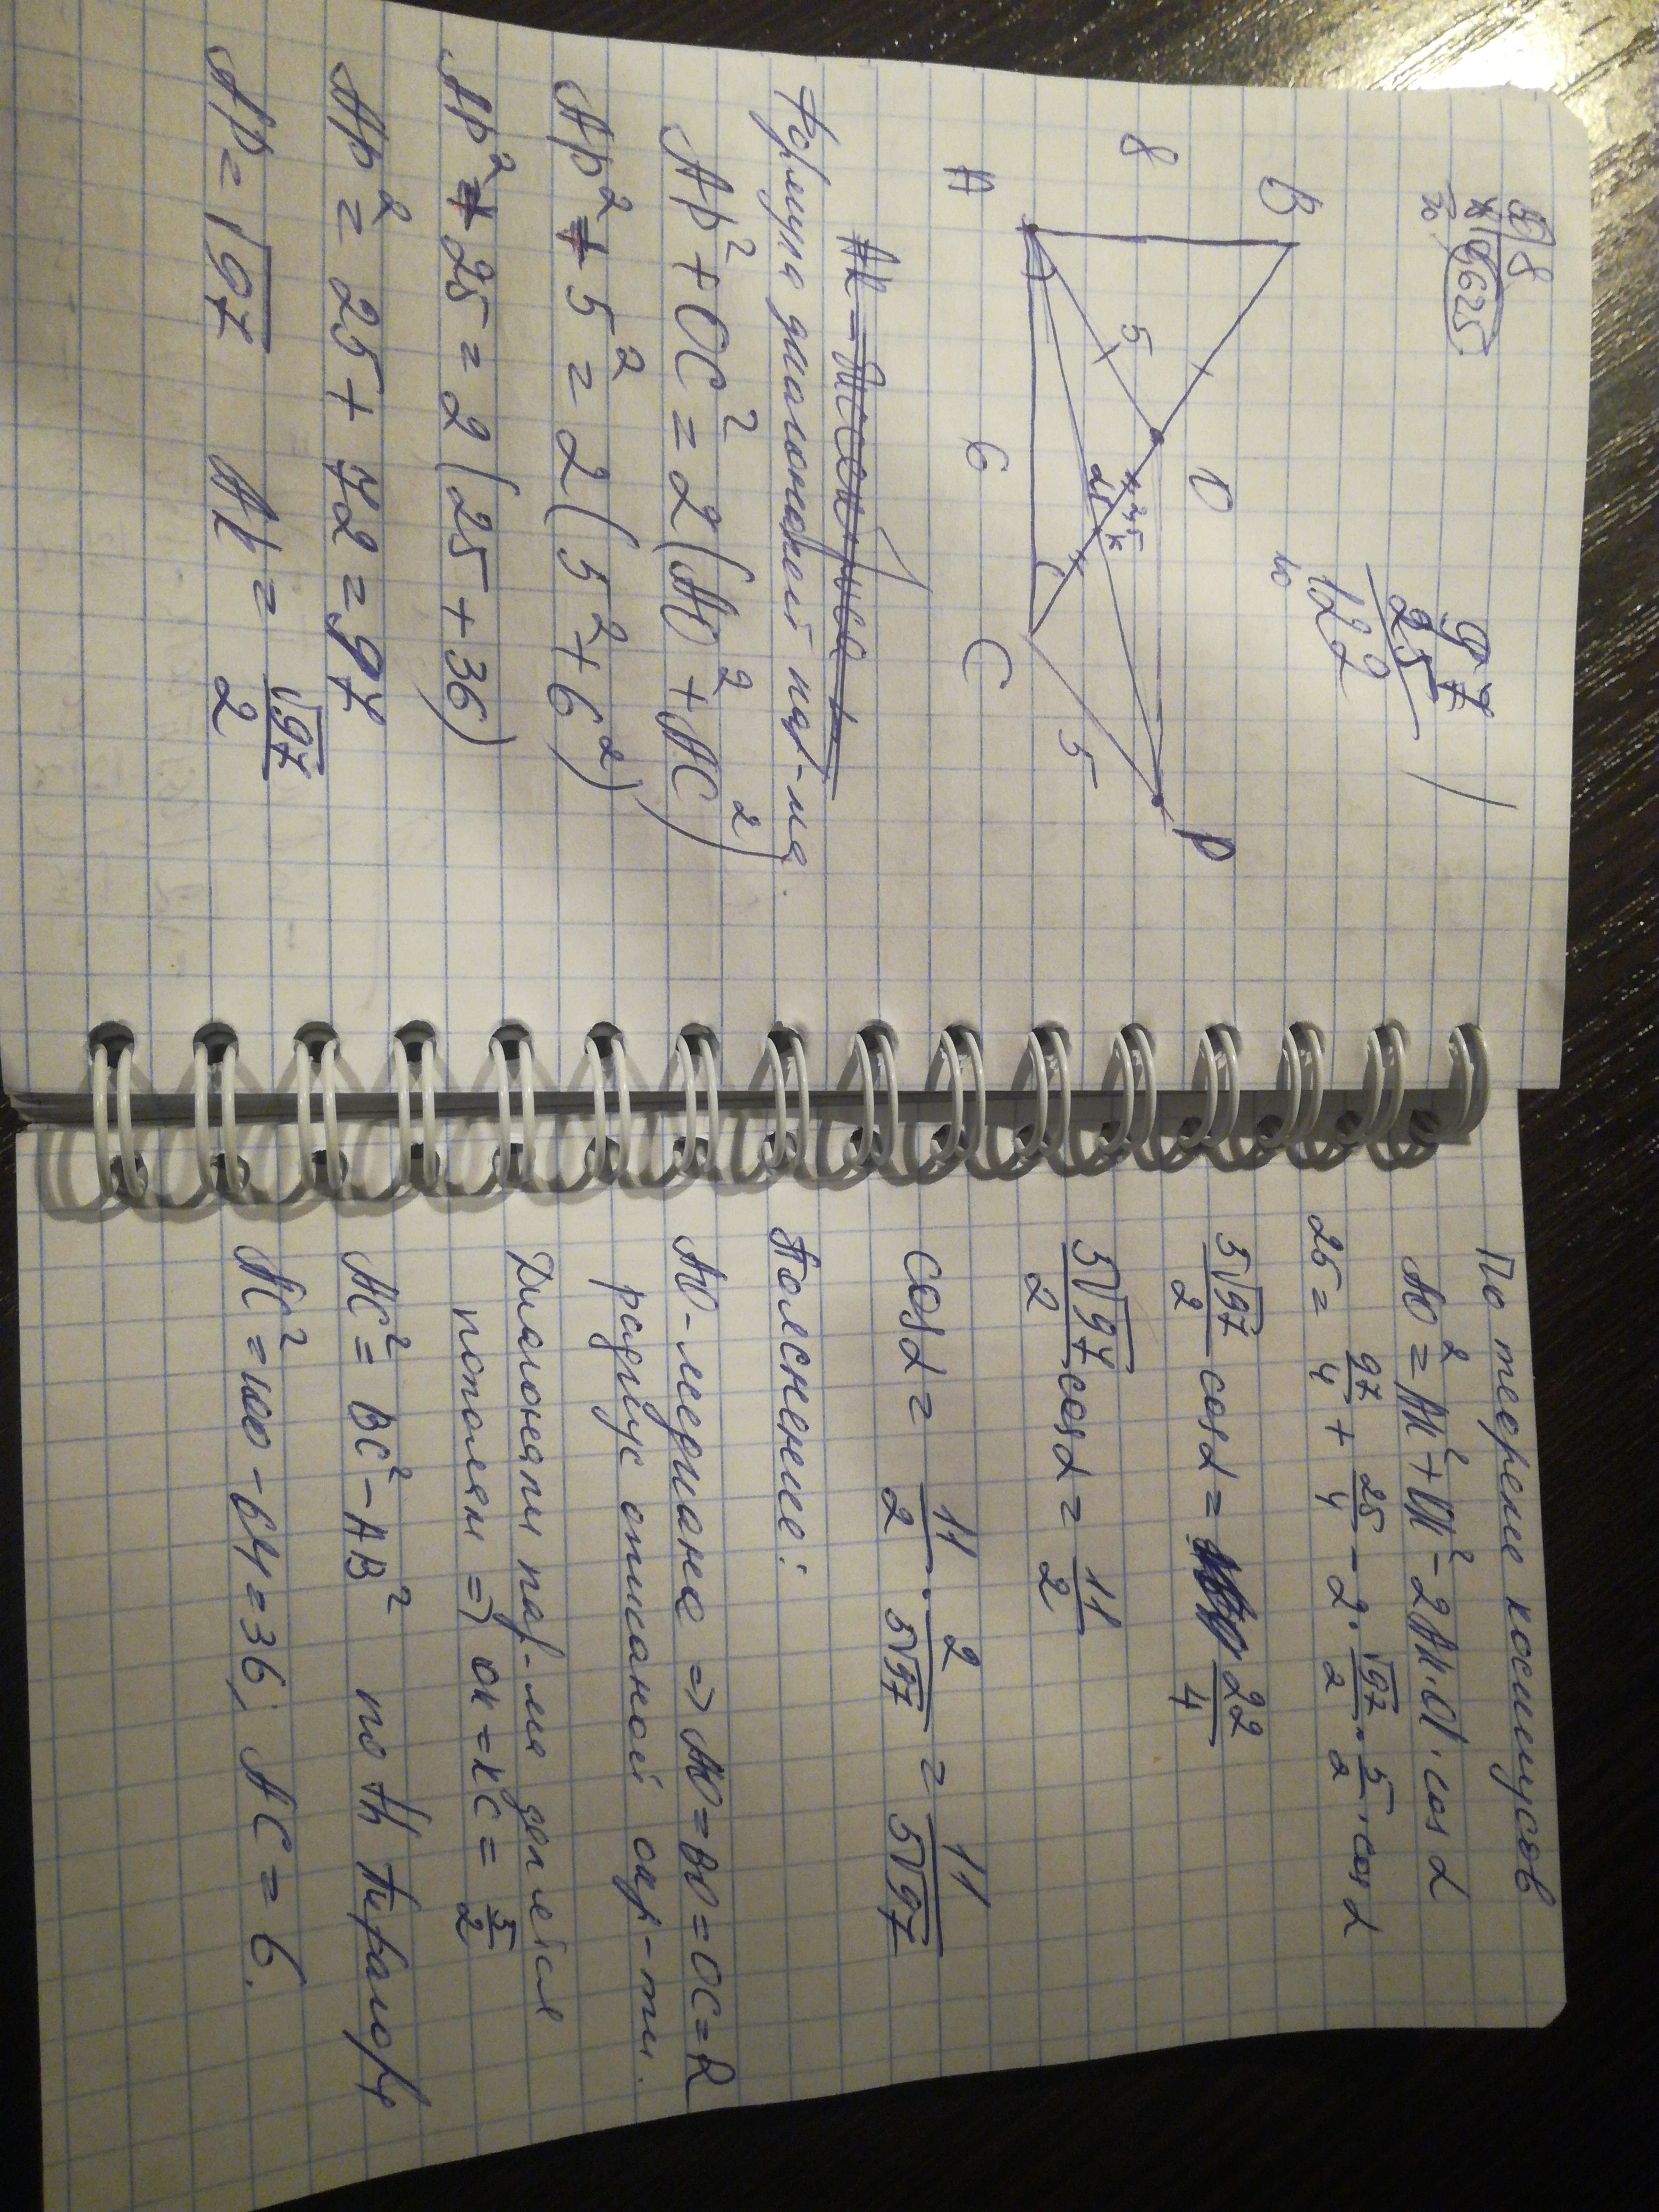 9625
20
97
25
122
40
B
8
A
5
O
2,5
K
α
6
C
5
P
Формула диагоналей пар-ма.
AP² + OC² = 2(AO² + AC²)
AP² + 5² = 2(5² + 6²)
AP² + 25 = 2(25 + 36)
AP² = 25 + 72 = 97
AP = √97 AK = √97/2
По теореме косинусов
AO² = AK² + OK² - 2AK·OK·cos α
25 = 97/4 + 25/4 - 2·√97/2·5/2·cos α
5√97/2 cos α = 22/4
5√97/2 cos α = 11/2
cos α = 11/2 · 2/5√97 = 11/5√97
Пояснение:
AO - медиана => AO = BO = OC = R
радиус описаной окр-ти.
Диагонали пар-ма делятся
пополам => OK = KC = 5/2
AC² = BC² - AB² по th Пифагора
AC² = 100 - 64 = 36; AC = 6.